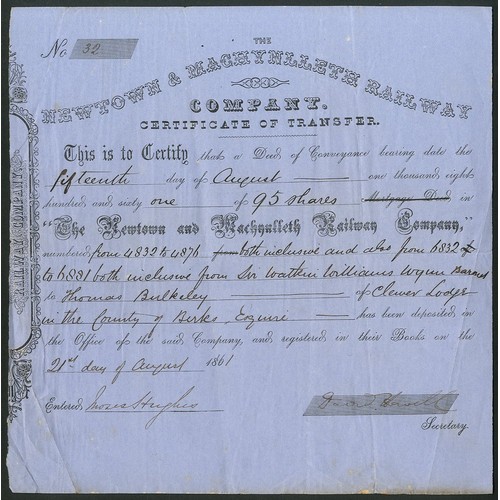 No 32
THE
NEWTOWN & MACHYNLLETH RAILWAY
COMPANY.
CERTIFICATE OF TRANSFER.
This is to Certify that a Deed of Conveyance bearing date the
fifteenth day of August one thousand eight
hundred and sixty one of 95 shares Mortgage Deed in
"The Newtown and Machynlleth Railway Company,"
numbered from 4832 to 4876 from both inclusive and also from 6832
to 6881 both inclusive from Sir Watkin Williams Wynn Baronet
to Thomas Bulkeley of Clewer Lodge
in the County of Berks, Esquire has been deposited in
the Office of the said Company, and registered in their Books on the
21st day of August 1861
Entered, Moses Hughes
Secretary.
RAILWAY COMPANY.